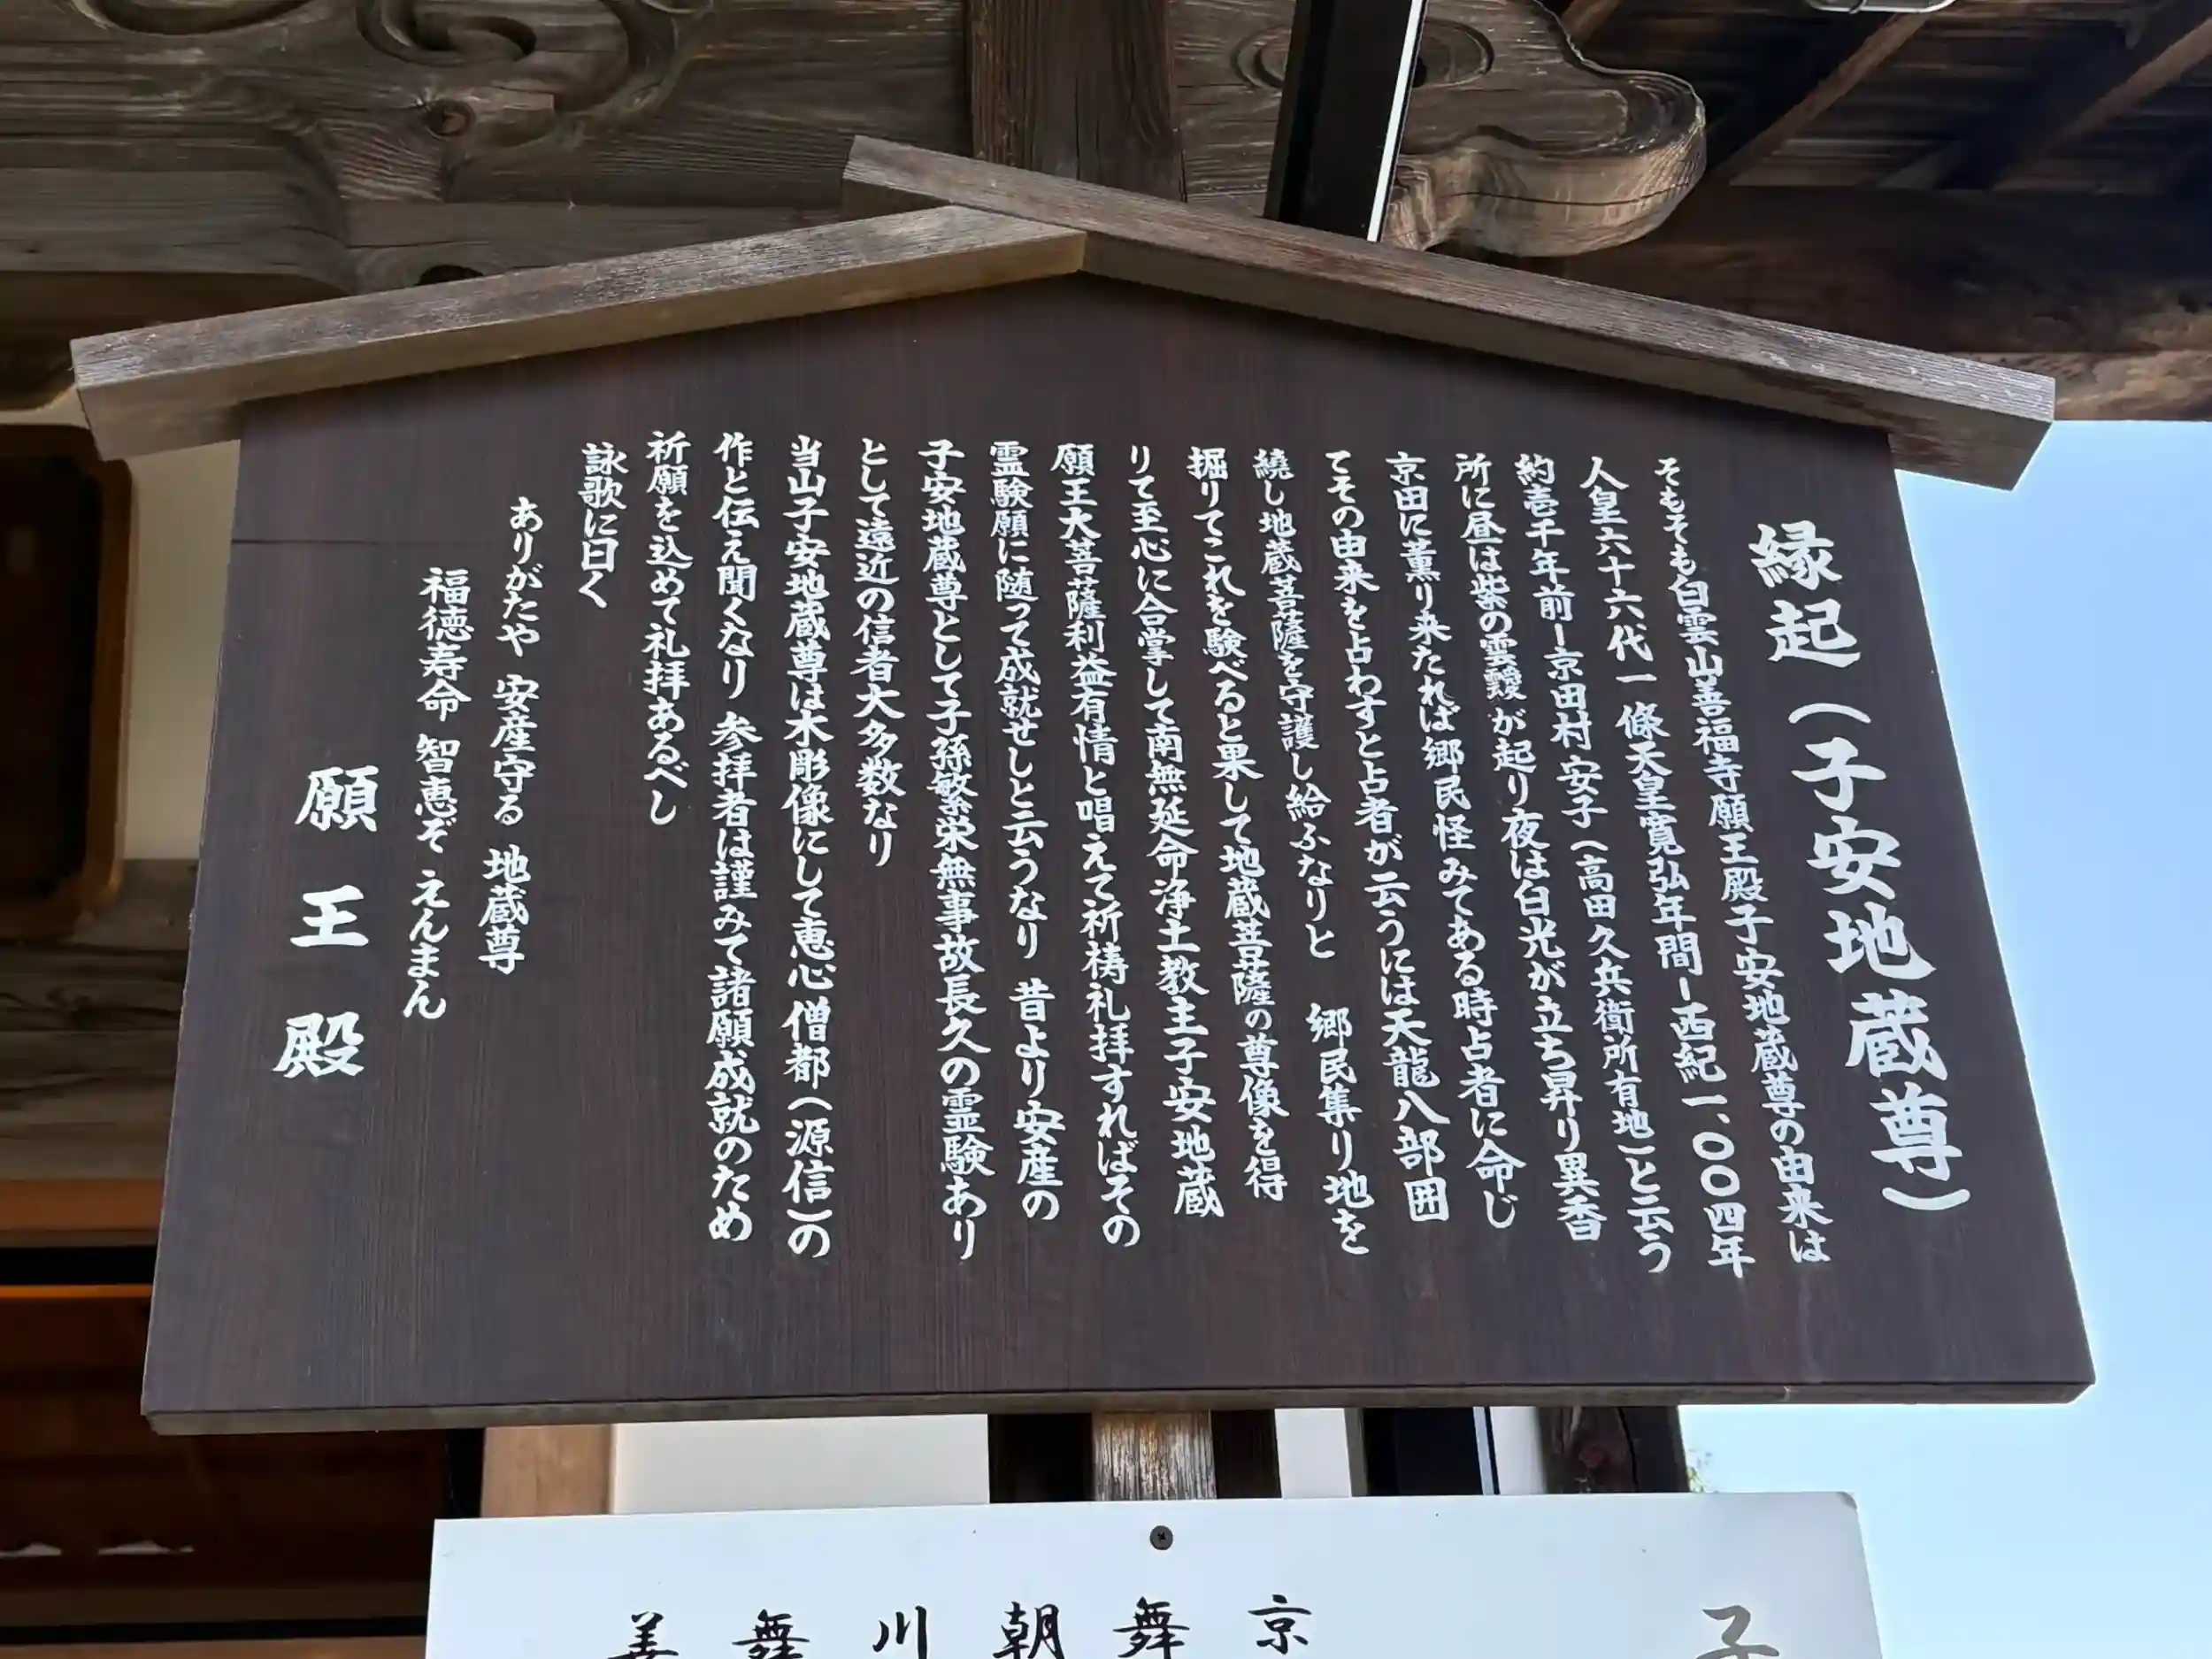 縁起(子安地蔵尊)
そもそも白雲山善福寺願王殿子安地蔵尊の由来は
人皇六十六代一條天皇寛弘年間ー西紀一、〇〇四年
約壱千年前ー京田村安子(高田久兵衛所有地)と云う
所に昼は紫の雲靉が起り夜は白光が立ち昇り異香
京田に薫り来たれば郷民怪みてある時占者に命じ
てその由来を占わすと占者が云うには天龍八部囲
繞し地蔵菩薩を守護し給ふなりと 郷民集り地を
掘りてこれを験べると果して地蔵菩薩の尊像を得
りて至心に合掌して南無延命浄土教主子安地蔵
願王大菩薩利益有情と唱えて祈祷礼拝すればその
霊験願に随って成就せしと云うなり 昔より安産の
子安地蔵尊として子孫繁栄無事故長久の霊験あり
として遠近の信者大多数なり
当山子安地蔵尊は木彫像にして恵心僧都(源信)の
作と伝え聞くなり 参拝者は謹みて諸願成就のため
祈願を込めて礼拝あるべし
詠歌に曰く
ありがたや 安産守る 地蔵尊
福徳寿命 智恵ぞ えんまん
願王殿
子
京
舞
朝
川
舞